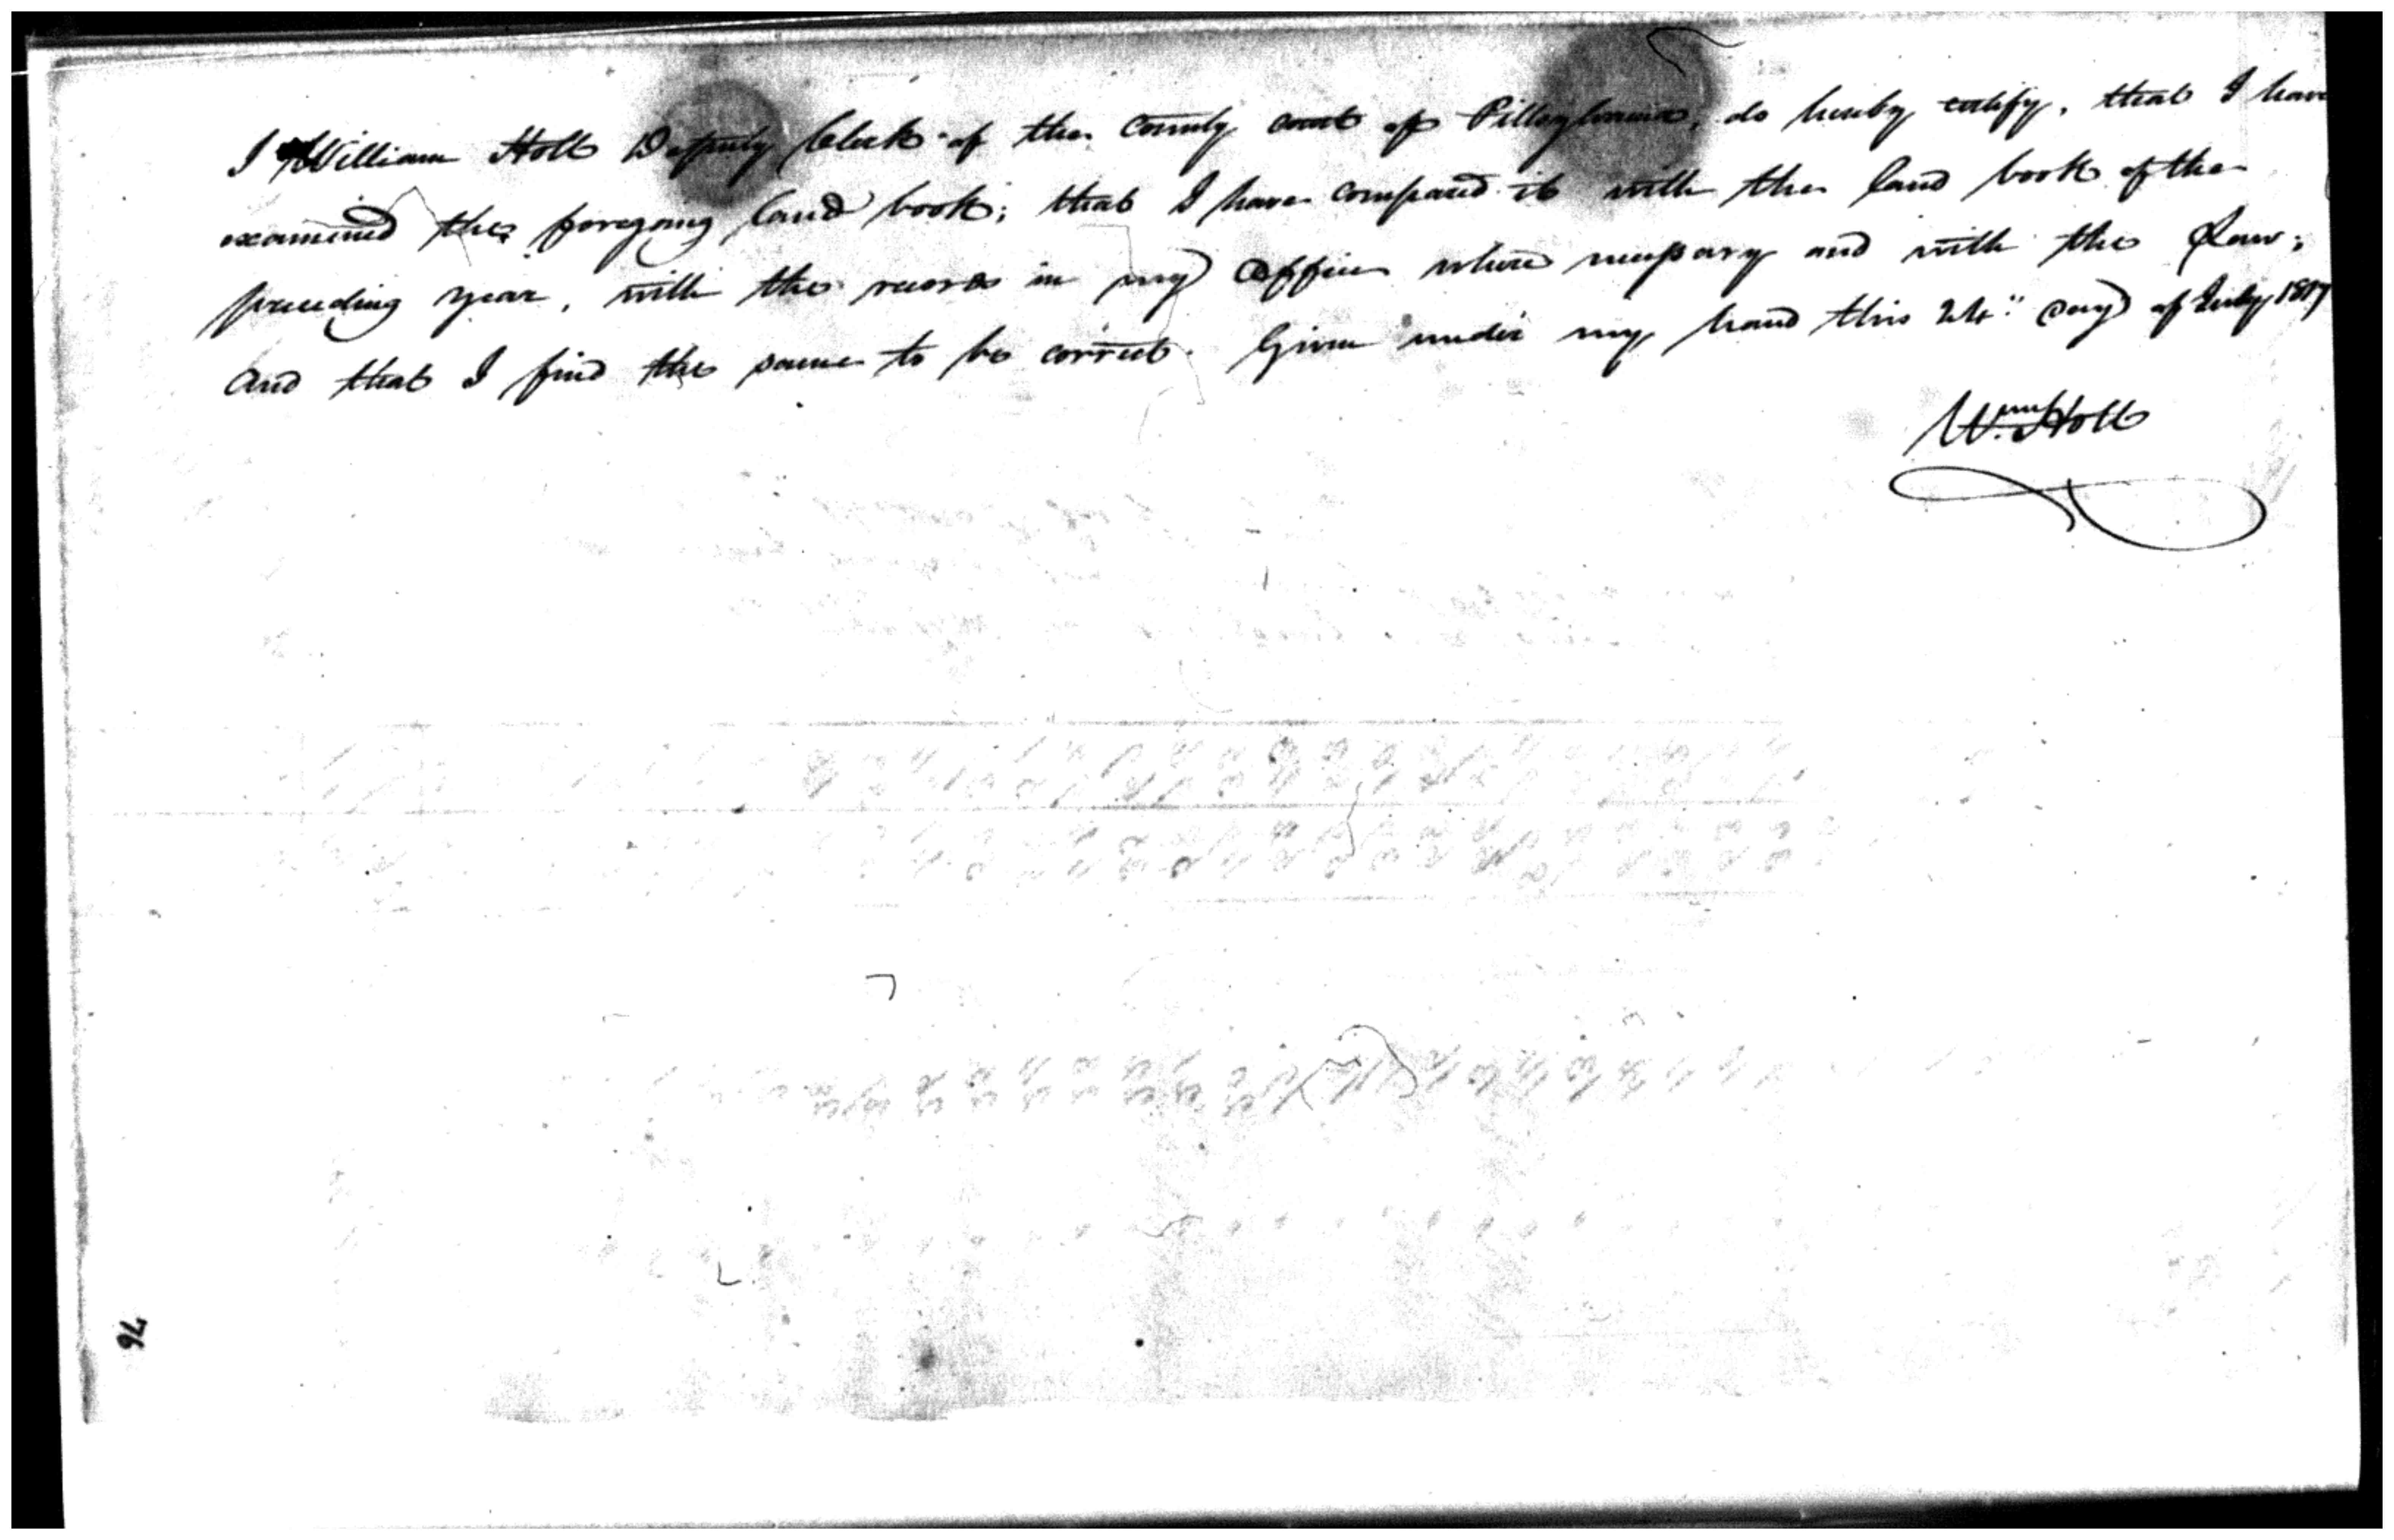 I William Holt Deputy Clerk of the County court of Pittsylvania, do hereby certify, that I have
examined the foregoing land book; that I have compared it with the land book of the
preceding year, with the records in my office where necessary and with the Law;
And that I find the same to be correct. Given under my hand this 24th day of July 1817
Wm Holt
76